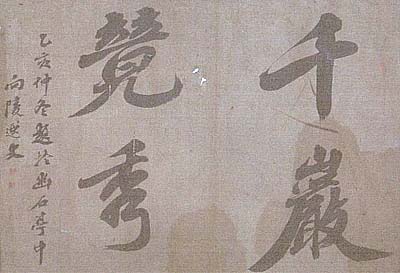 千巖
競秀
乙亥仲冬題於幽石亭中
向陵